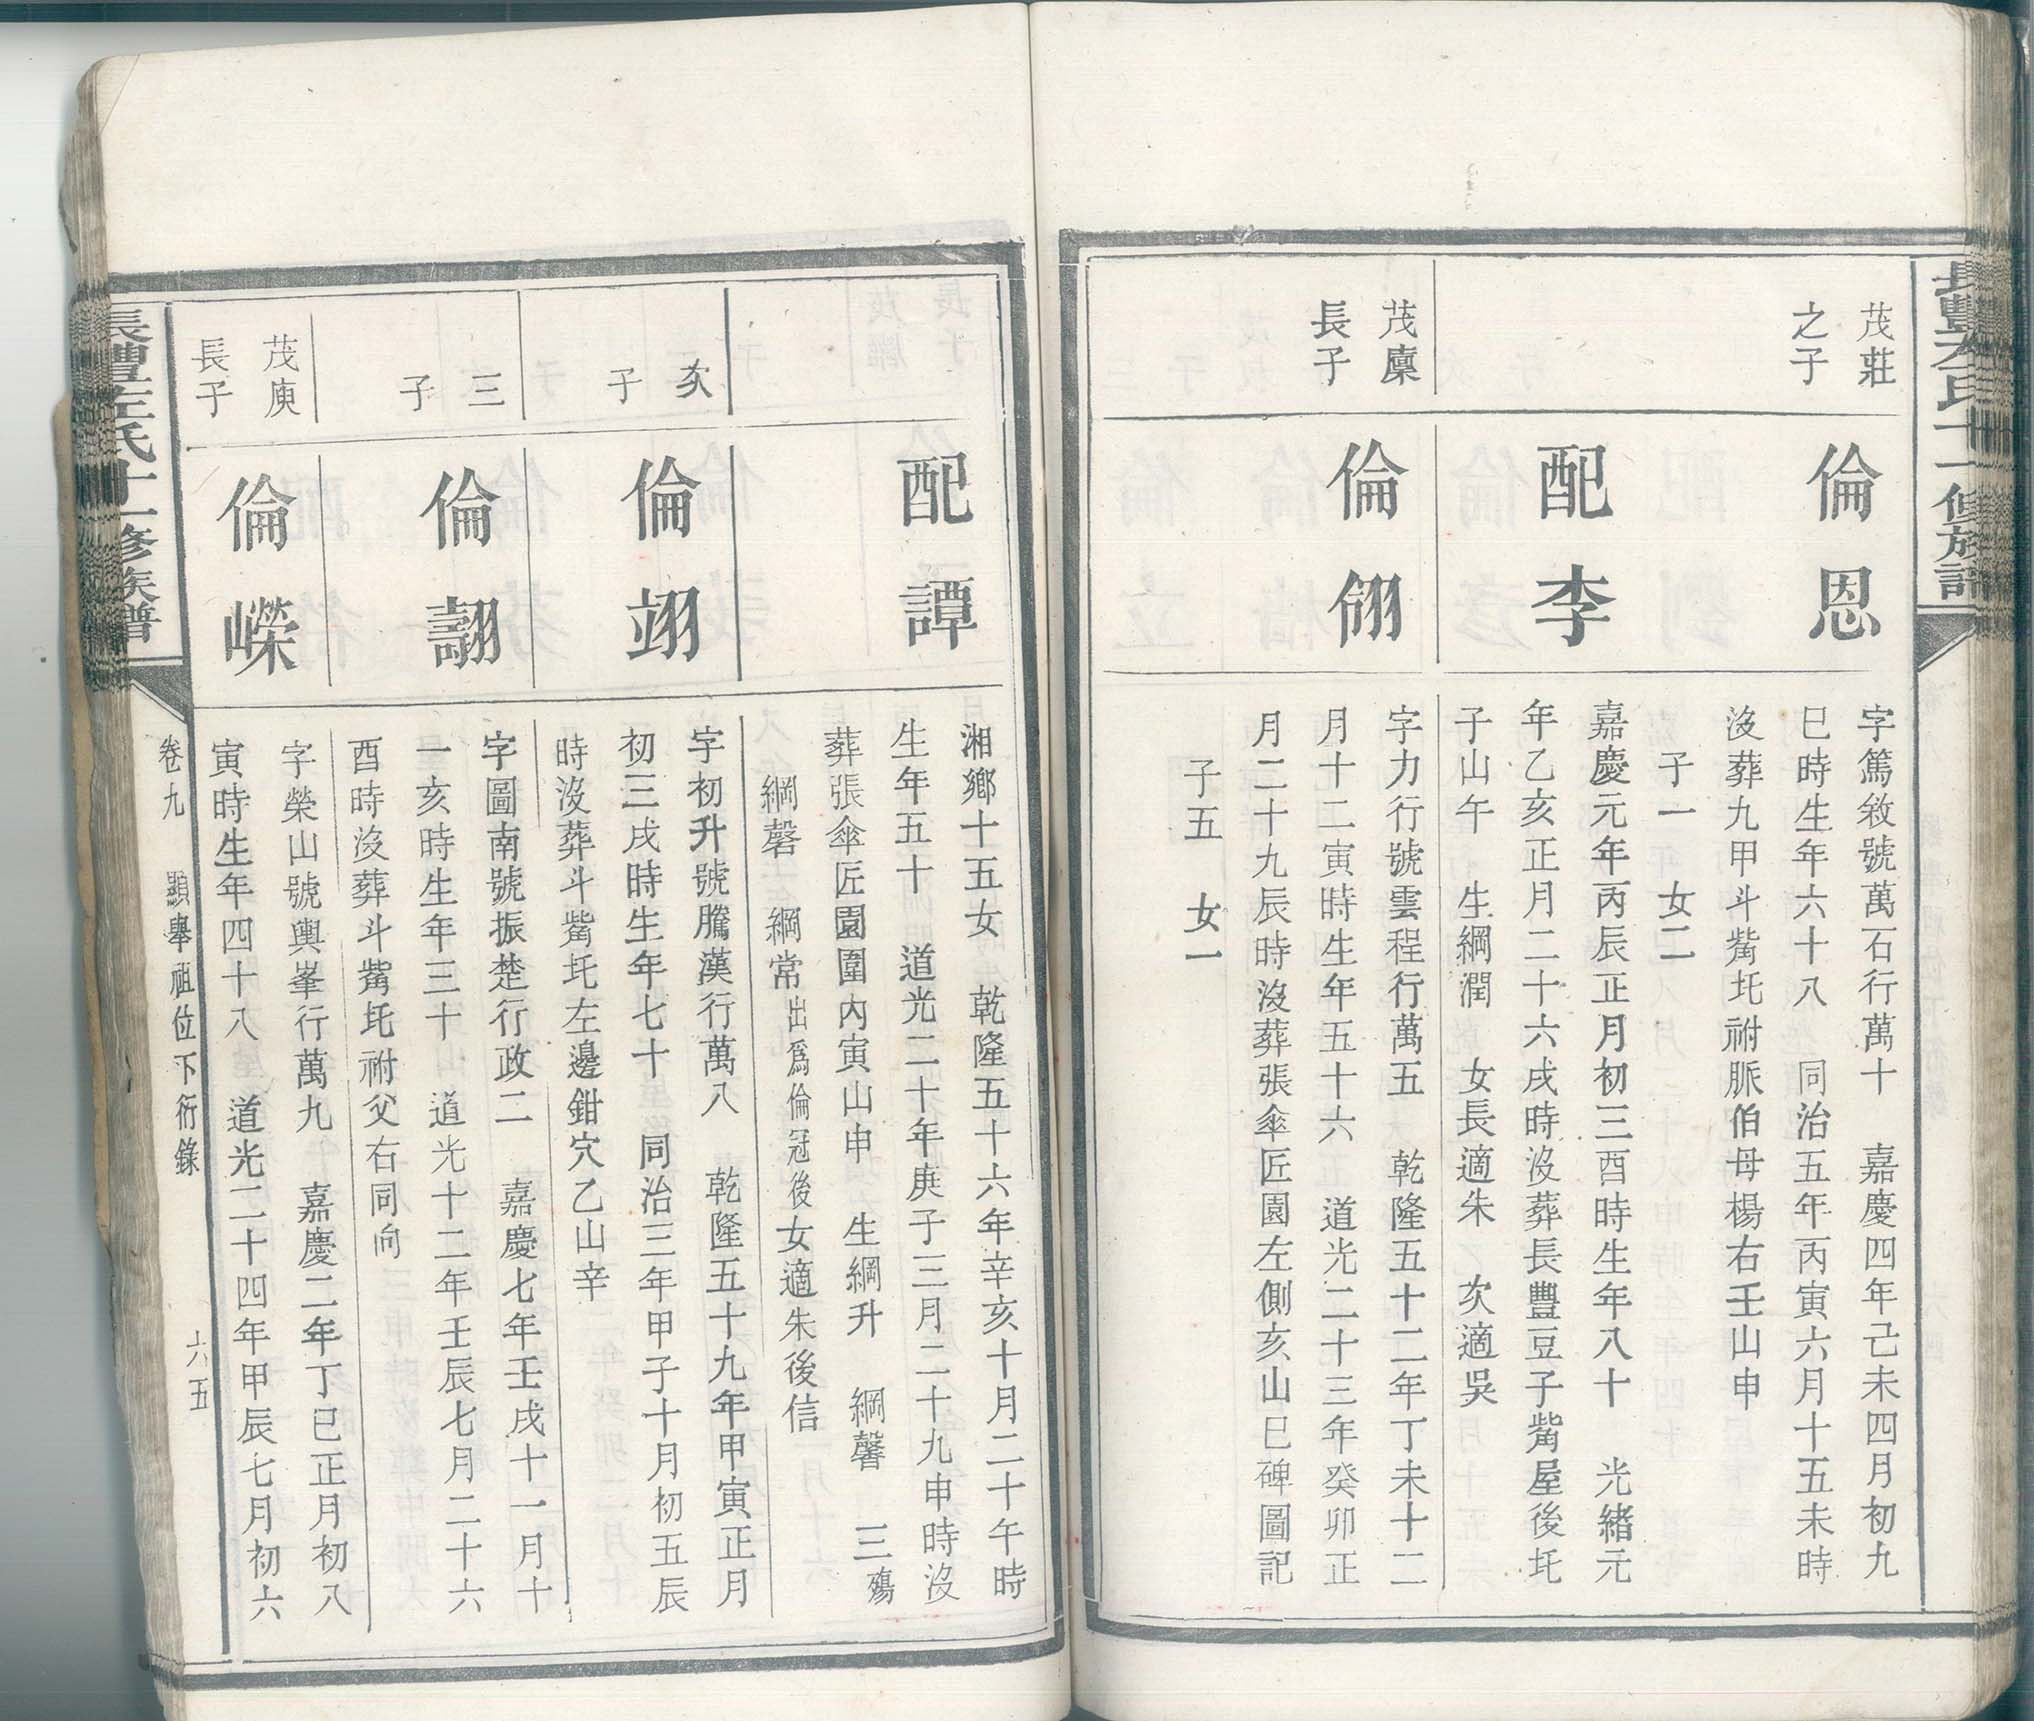 長豐左氏十一修族譜
茂莊
之子
倫恩
字篤敘號萬石行萬十 嘉慶四年己未四月初九
巳時生年六十八 同治五年丙寅六月十五未時
沒葬九甲斗觜坉祔脈伯母楊右壬山申
子一 女二
配李
嘉慶元年丙辰正月初三酉時生年八十 光緒元
年乙亥正月二十六戌時沒葬長豐豆子觜屋後坉
子山午 生綱潤 女長適朱 次適吳
茂廩
長子
倫翎
字力行號雲程行萬五 乾隆五十二年丁未十二
月十二寅時生年五十六 道光二十三年癸卯正
月二十九辰時沒葬張傘匠園左側亥山巳碑圖記
子五 女一
配譚
湘鄉十五女 乾隆五十六年辛亥十月二十午時
生年五十 道光二十年庚子三月二十九申時沒
葬張傘匠園圍內寅山申 生綱升 綱馨 三殤
綱磬 綱常出爲倫冠後女適朱後信
次
子
倫翊
字初升號騰漢行萬八 乾隆五十九年甲寅正月
初三戌時生年七十 同治三年甲子十月初五辰
時沒葬斗觜坉左邊鉗穴乙山辛
三
子
倫翽
字圖南號振楚行政二 嘉慶七年壬戌十一月十
一亥時生年三十 道光十二年壬辰七月二十六
酉時沒葬斗觜坉祔父右同向
茂庾
長子
倫嶸
字榮山號輿峯行萬九 嘉慶二年丁巳正月初八
寅時生年四十八 道光二十四年甲辰七月初六
長豐左氏十一修族譜
卷九 顯舉祖位下衍錄 六五